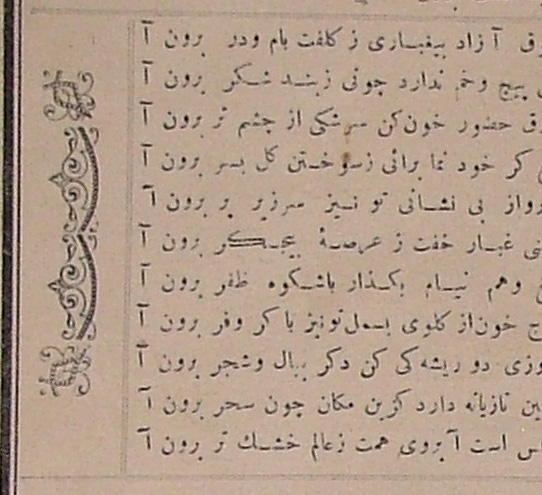 آزاد بیغباری ز کلفت بام ودر برون آ
پیچ وخم ندارد چونی زبند شکر برون آ
حضور خون کن سرشکی از چشم تر برون آ
کر خود نما برائی زسوختن کل بسر برون آ
بی نشانی تو نیز سرزیر پر برون آ
غبار خفت ز عرصهٔ برون آ
وهم نیام بکذار باشکوه ظفر برون آ
خون از کلوی بسمل تو نیز با کر وفر برون آ
دو ریشه کی کن دکر ببال وشجر برون آ
تازیانه دارد کزین مکان چون سحر برون آ
است آبروی همت زعالم خشك تر برون آ